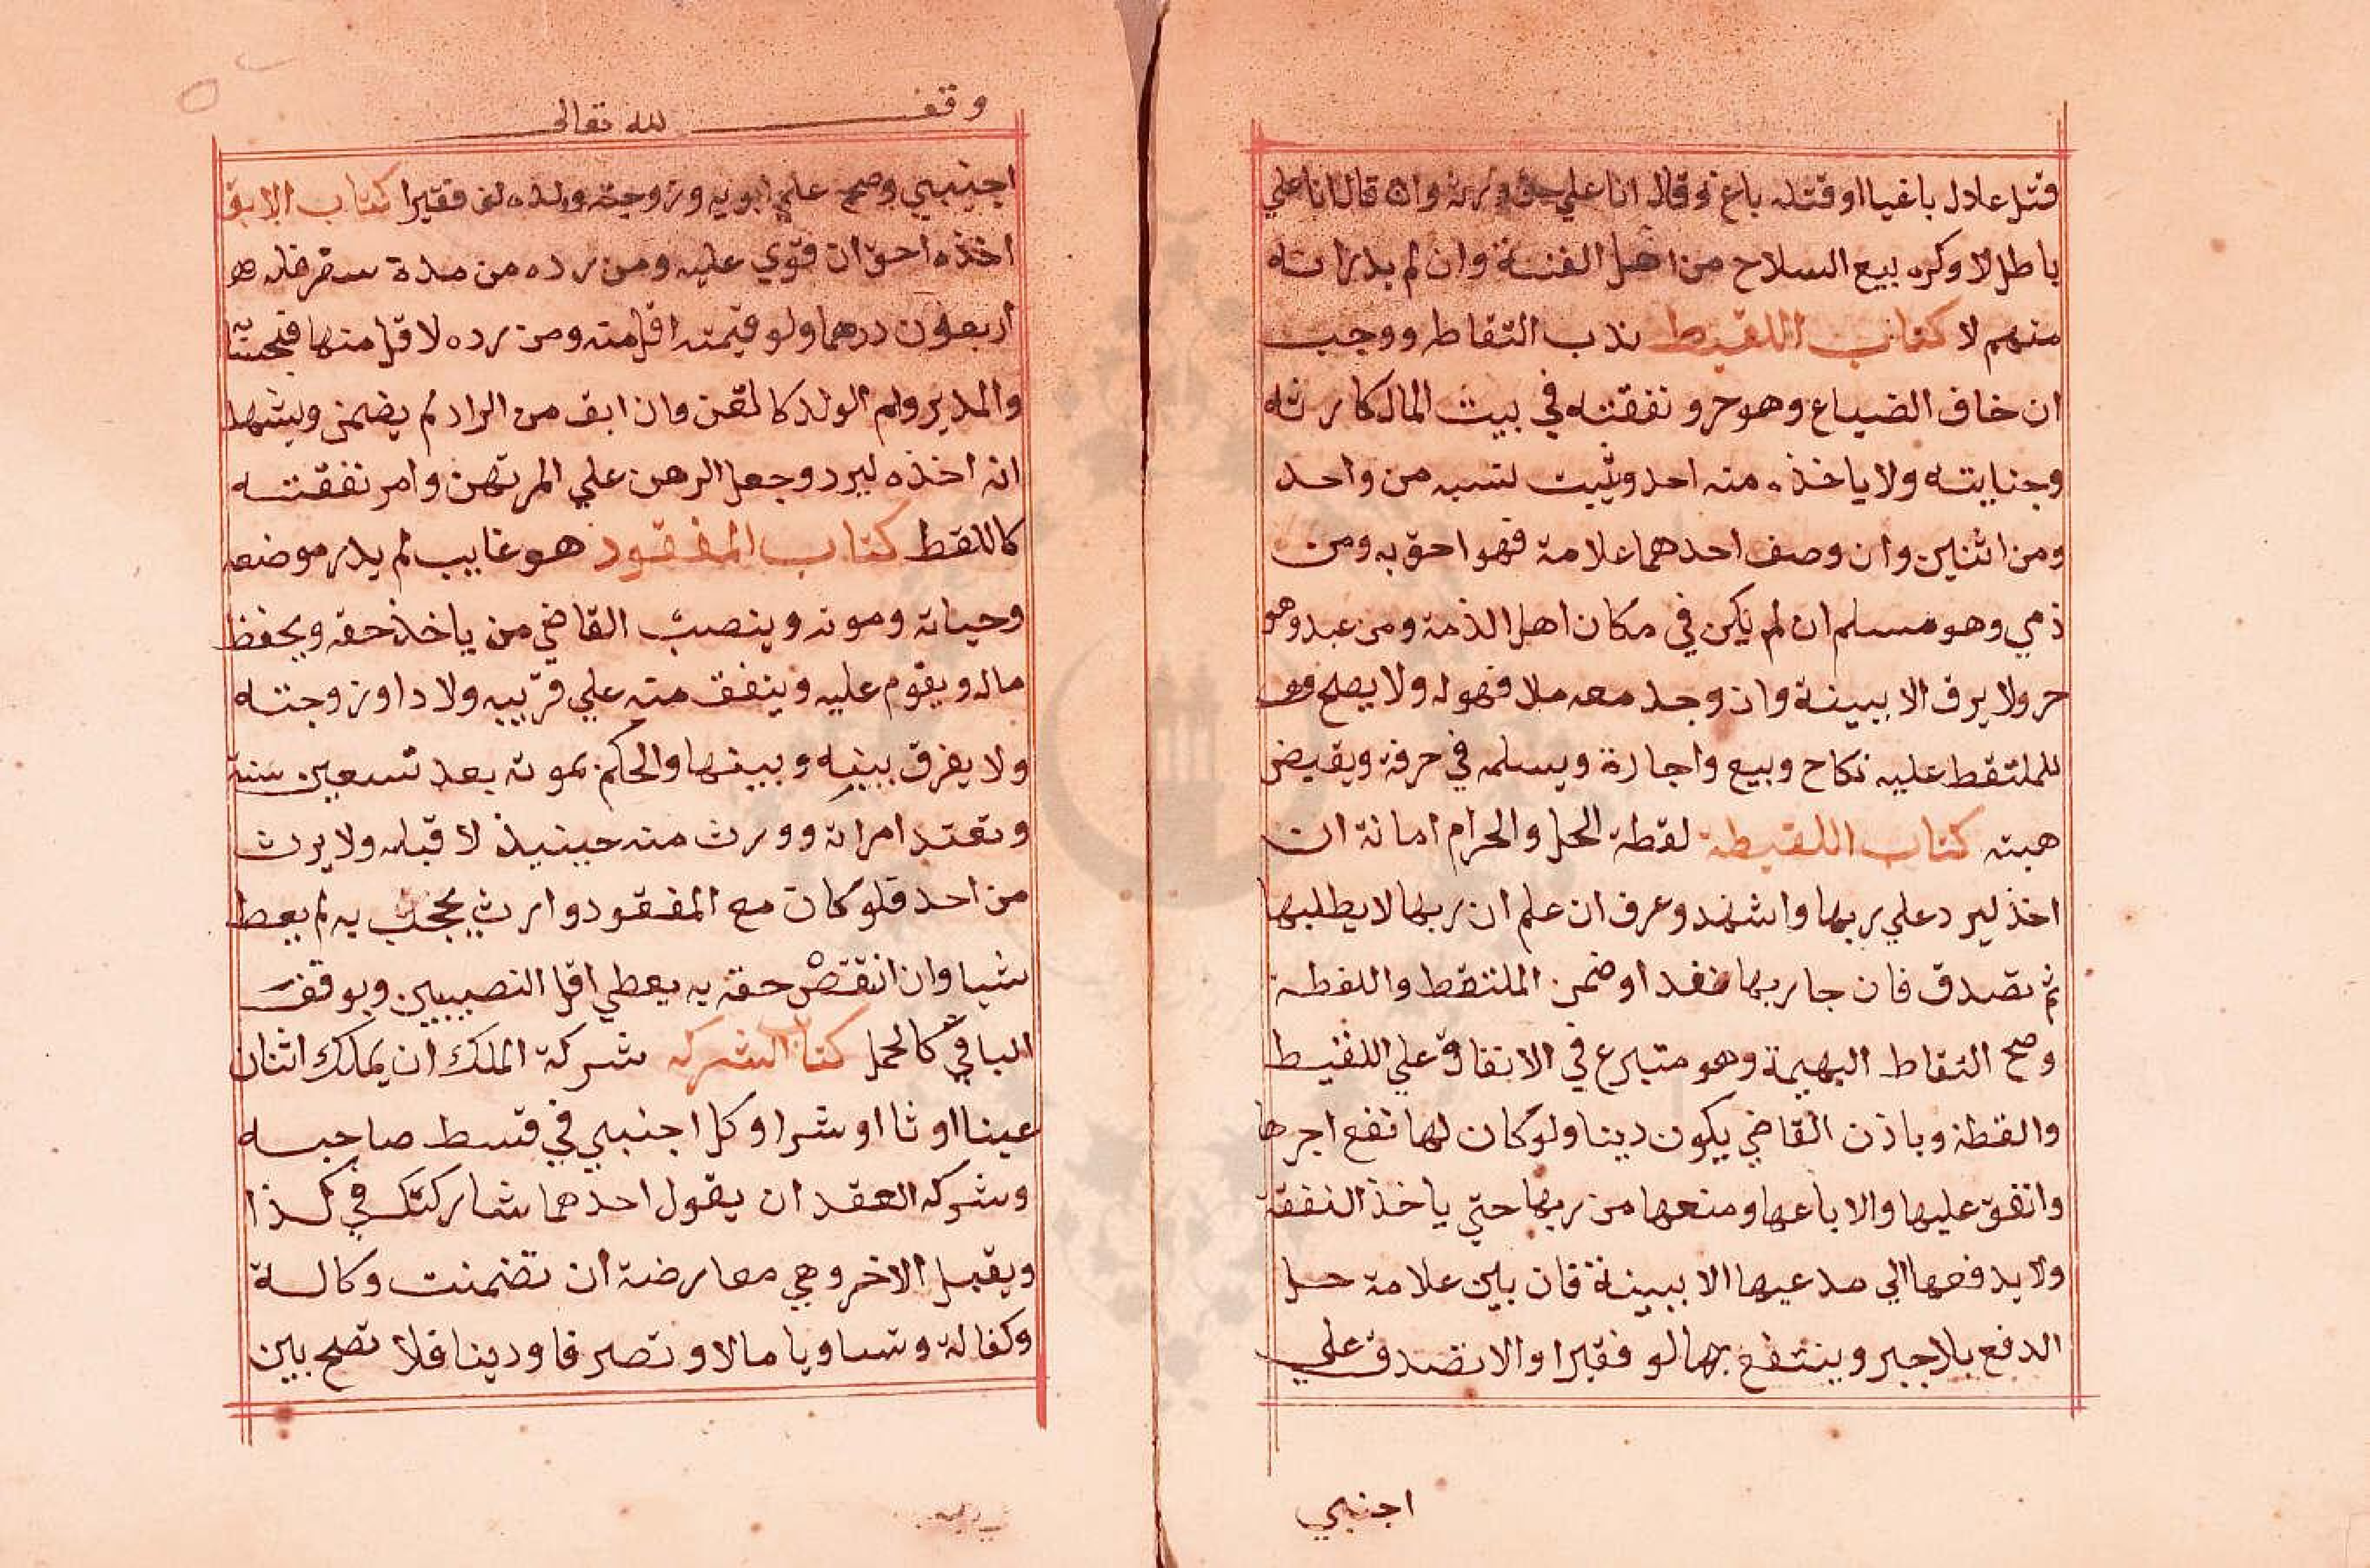 قتل عادل باغيا او قتله باغ وقال انا علي حق ورثه وان قال انا علي
باطل لا وكره بيع السلاح من اهل الفتنة وان لم يدر انه
منهم لا كتاب اللقيط ندب التقاطه ووجب
ان خاف الضياع وهو حر ونفقته في بيت المال كارثه
وجنايته ولا ياخذه منه احد ويثبت نسبه من واحد
ومن اثنين وان وصف احدهما علامة فهو احق به ومن
ذمي وهو مسلم ان لم يكن في مكان اهل الذمة ومن عبد وهو
حر ولا يرق الا ببينة وان وجد معه ملا فهو له ولا يصلح
للملتقط عليه نكاح وبيع واجارة ويسلمه في حرفة ويقبض
هبته كتاب اللقيطة لقطة الحل والحرام امانة ان
اخذ ليرد علي ربها واشهد وعرف ان علم ان ربها لا يطلبها
ثم تصدق فان جا ربها نفد او ضمن الملتقط واللقطة
وصح التقاط البهيمة وهو متبرع في الانفاق علي اللقيط
والقطة وباذن القاضي يكون دينا ولو كان لها نفع اجرها
وانفق عليها والا باعها ومنعها من ربها حتي ياخذ النفقة
ولا يدفعها الي مدعيها الا ببينة فان بين علامة حل
الدفع بلا جبر وينتفع بها لو فقيرا والا تصدق علي
اجنبي
وقف لله تعالى
اجنبي وصح علي ابويه وزوجته وولده لو فقيرا كتاب الابق
اخذه احق ان قوي عليه ومن رده من مدة سفر فله هو
اربعون درهما ولو قيمته اقل منه ومن رده لاقل منها
والمدبر وام الولد كالقن وان ابق من الراد لم يضمن ويشهد
انه اخذه ليرد وجعل الرهن علي المرتهن وامر نفقته
كاللقط كتاب المفقود هو غايب لم يدر موضعه
وحياته وموته وينصب القاضي من ياخذ حقه ويحفظ
ماله ويقوم عليه وينفق منه علي قريبه ولادا وزوجته
ولا يفرق بينه وبينها والحكم بموته بعد تسعين سنة
وتعتد امراته وورث منه حينيذ لا قبله ولا يرث
من احد فلو كان مع المفقود وارث يحجب به لم يعط
شيا وان انتقص حقه به يعطي اقل النصيبين ويوقف
الباقي كالحمل كتاب الشركه شركة الملك ان يملك اثنان
عينا او ثا او شرا وكل اجنبي في قسط صاحبه
وشركه العقد ان يقول احدهما شاركتك في كذا
ويقبل الاخر وهي معارضة ان تضمنت وكالة
وكفالة وتساويا مالا وتصرفا ودينا فلا تصح بين